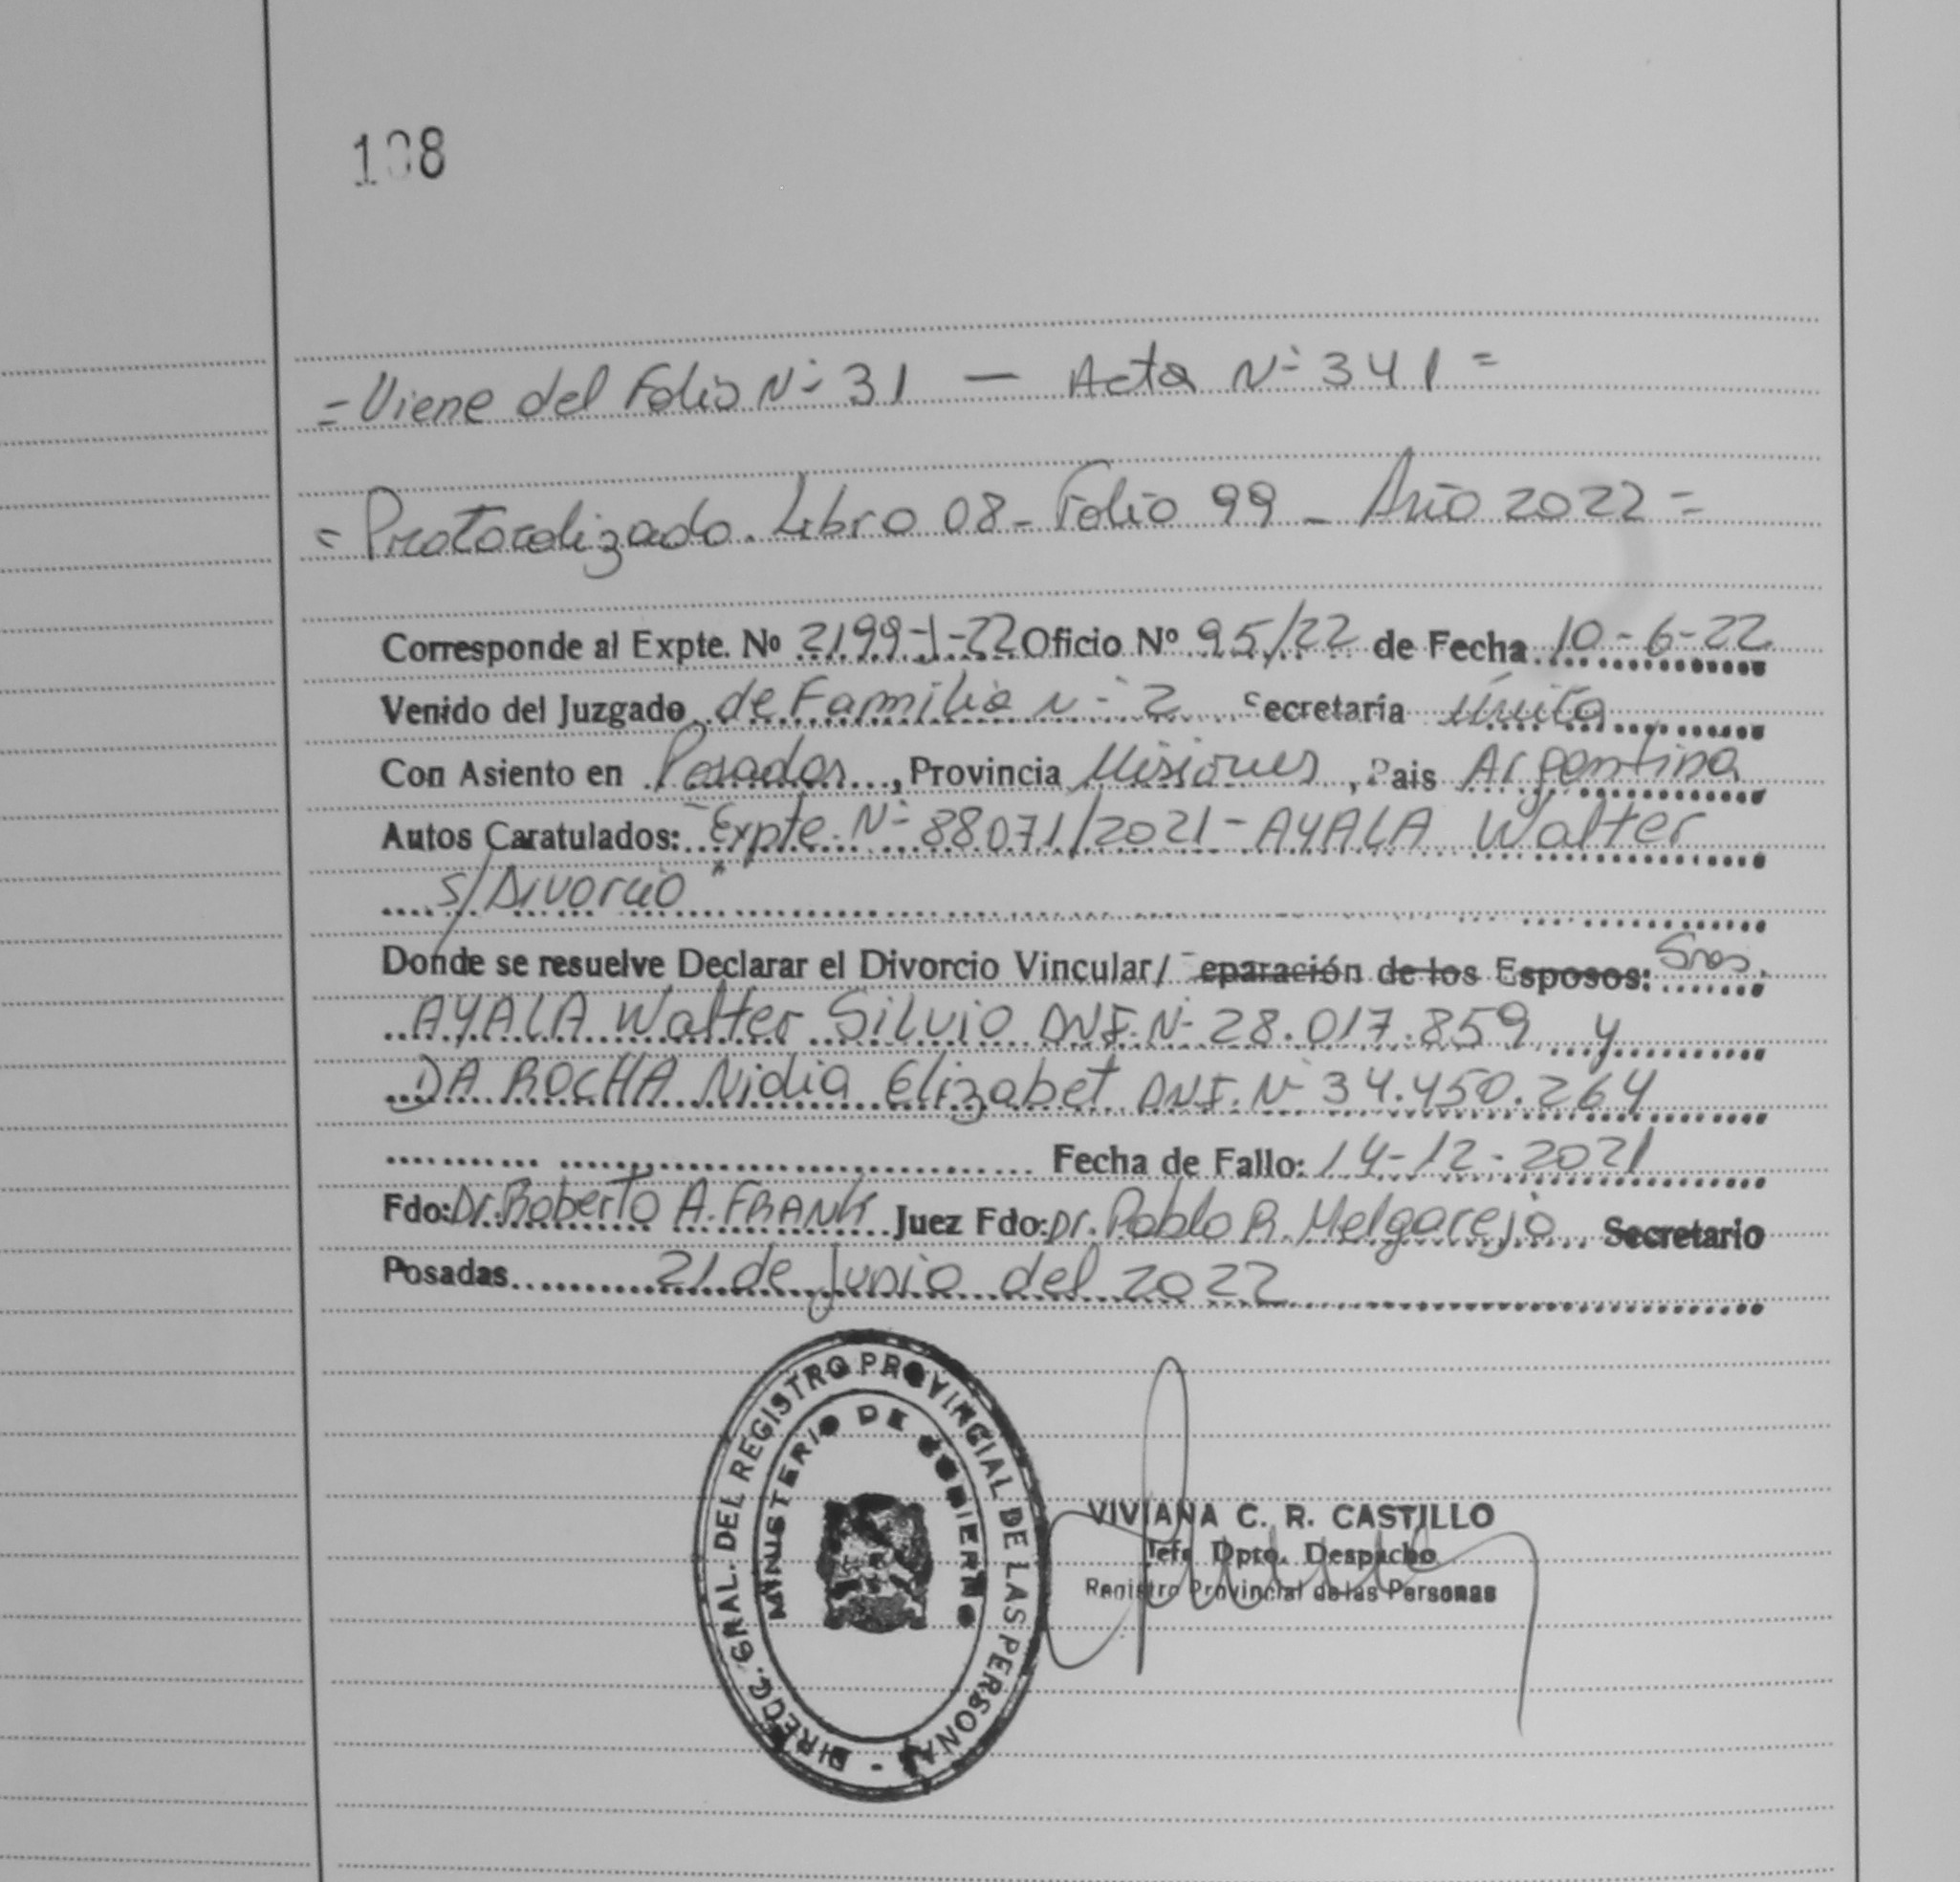 108
= Viene del Folio Nº 31 — Acta Nº 341 =
= Protocolizado. Libro 08 - Folio 99 - Año 2022 =
Corresponde al Expte. Nº 2199-J-22 Oficio Nº 95/22 de Fecha 10-6-22
Venido del Juzgado de Familia Nº 2 Secretaría Única
Con Asiento en Posadas, Provincia Misiones, Pais Argentina
Autos Caratulados: "Expte. Nº 88071/2021 - AYALA Walter
s/Divorcio"
Donde se resuelve Declarar el Divorcio Vincular/ Separación de los Esposos: Sres.
AYALA Walter Silvio DNI. Nº 28.017.859 y
DA ROCHA Nidia Elizabet DNI. Nº 34.450.264
Fecha de Fallo: 14-12-2021
Fdo: Dr. Roberto A. FRANK Juez Fdo: Dr. Pablo R. Melgarejo Secretario
Posadas 21 de Junio del 2022
DIRECC. GRAL. DEL REGISTRO PROVINCIAL DE LAS PERSONAS -
MINISTERIO DE GOBIERNO
VIVIANA C. R. CASTILLO
Jefe Dpto. Despacho
Registro Provincial de las Personas